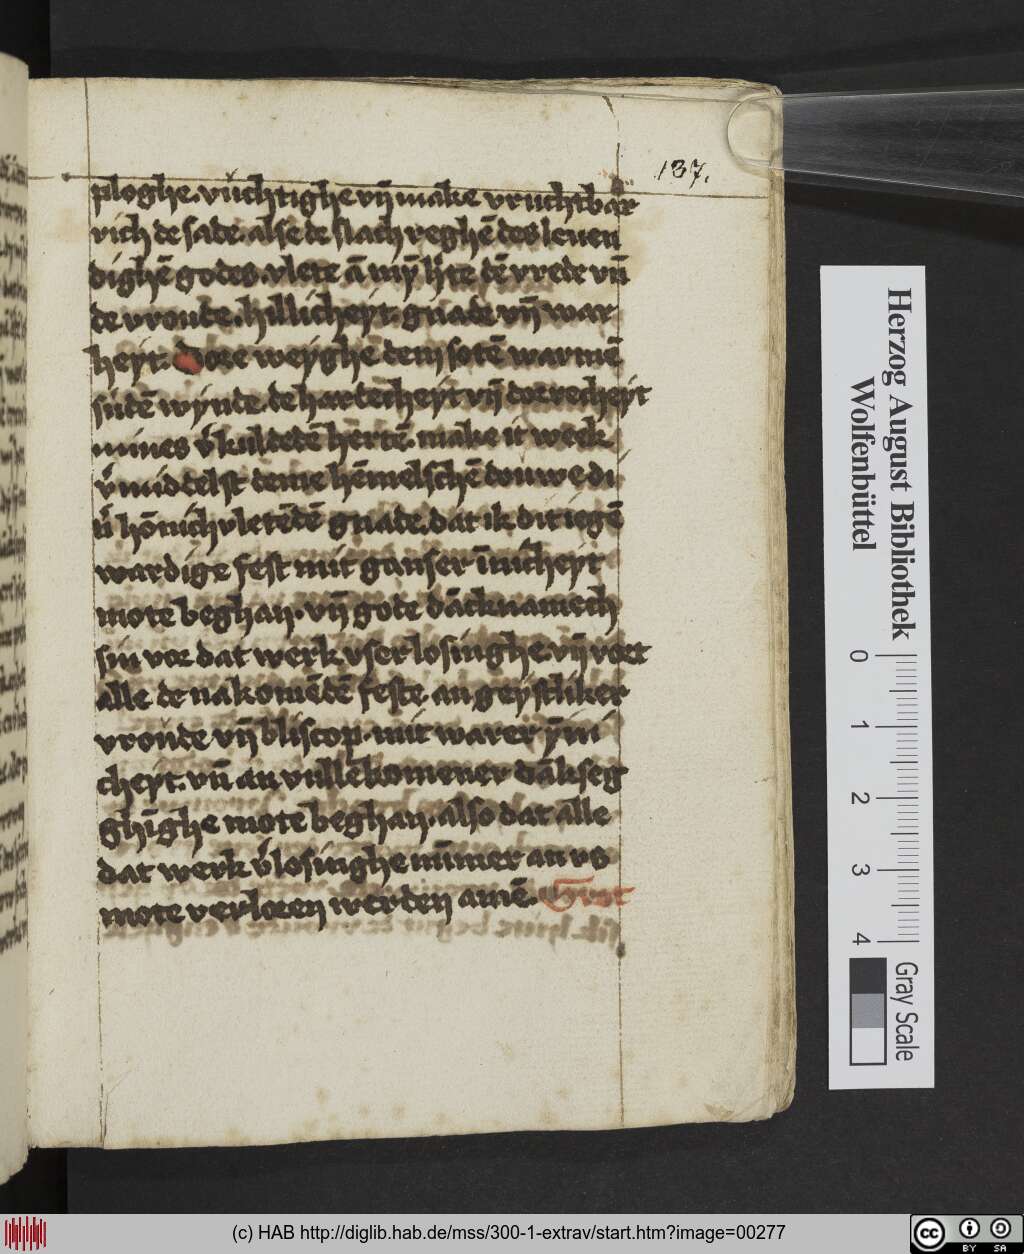 137.
ploghe. vüchtighe vn̄ make vruchtbar
rich de sade. alse de slach reghē des leuen
dighē godes. vlete ā myn h̄te dē vrede vn̄
de vroude. hillicheyt. gnade vn̄ war
heyt. Dore weyghe dem sotē warmē
sudē wynde. de hardecheyt vn̄ doerecheyt
mines v̄kuldedē hertē. make it week
v̄middelst deme hēmelschē douwe di
n̄ hōnichvletēdē gnade. dat ik dit iegē
wardige fest mit ganser īnicheyt
mote beghan. vn̄ gote dācknamech
sin vor dat werk vser losinghe vn̄ vort
alle de nakomēdē feste. an geystliker
vroude vn̄ bliscop. mit warer ȳni
cheyt. vn̄ an vullēkomener dākseg
ghīghe mote beghan. also dat alle
dat werk v̄losinghe nūmer an vs
mote verloren werden amē. Grot
Herzog August Bibliothek
Wolfenbüttel
0 1 2 3 4
Gray Scale
(c) HAB http://diglib.hab.de/mss/300-1-extrav/start.htm?image=00277
cc BY SA